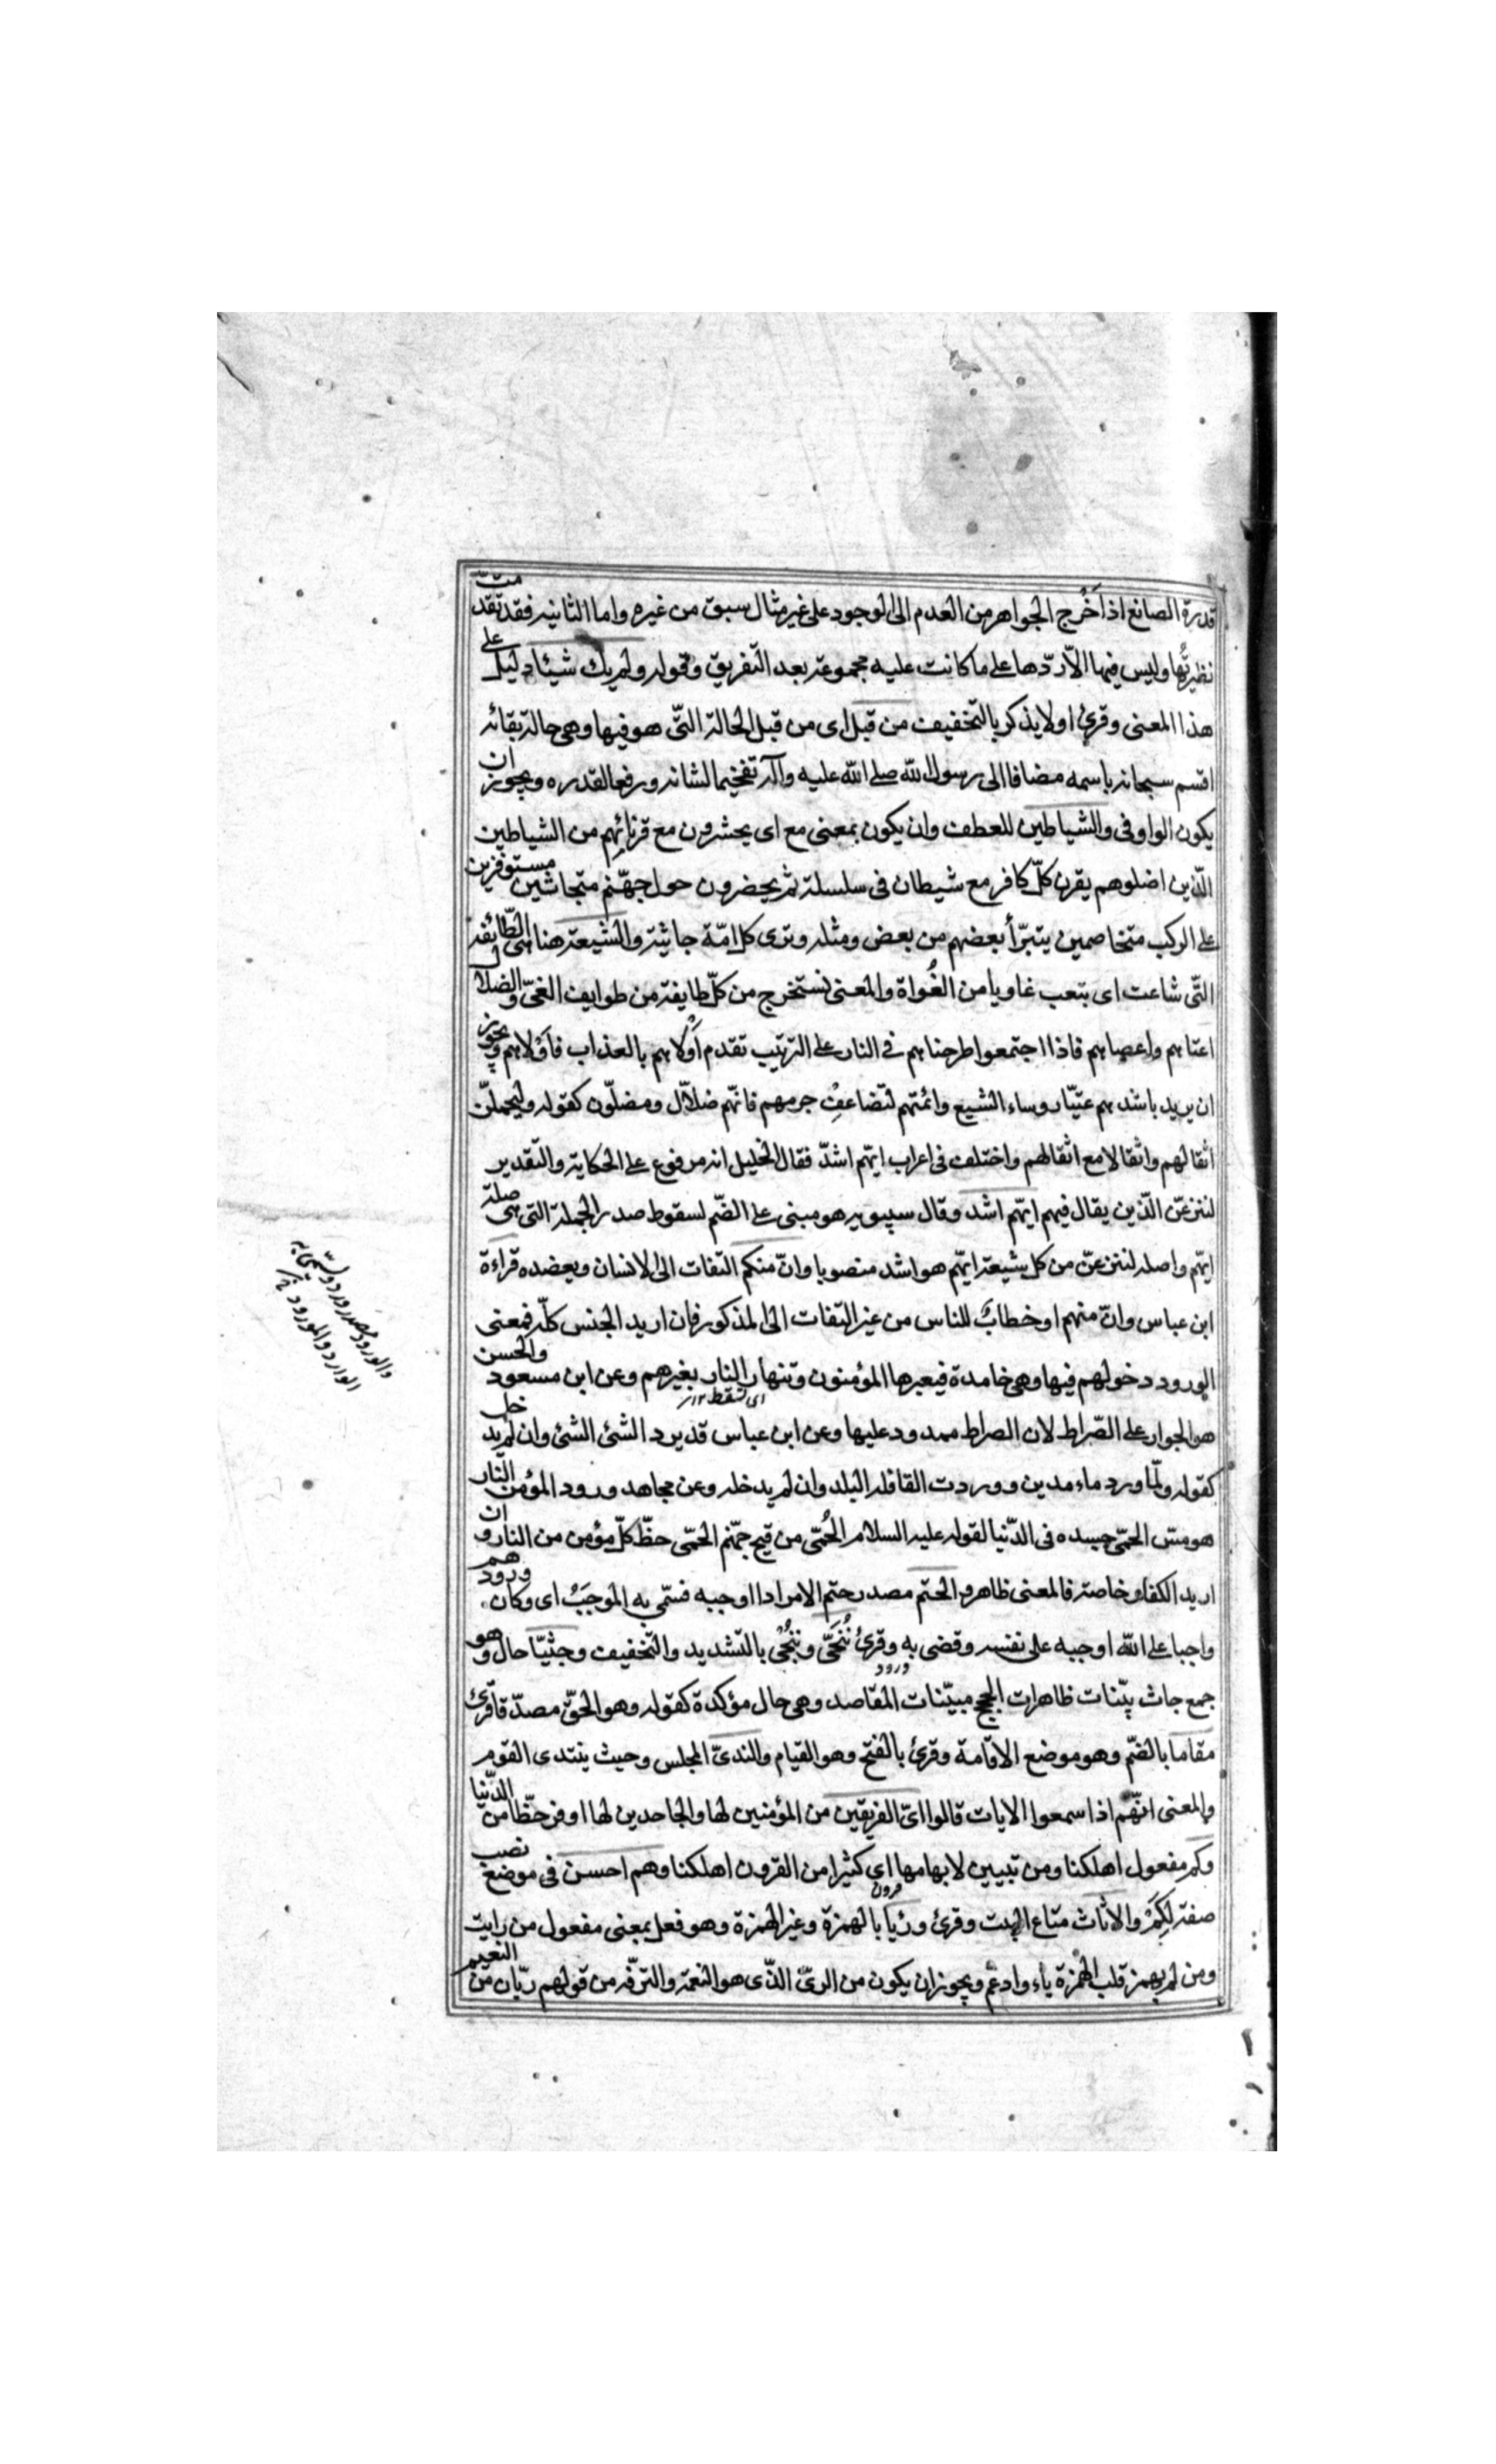 قدرة الصانع اذا اَخْرج الجواهر من العدم الى الوجود على غير مثال سبق من غيره واما الثانيه فقد تقدمت
نظيرتُها وليس فيها الّا ردّها على ما كانت عليه مجموعة بعد التفريق وقوله ولم يك شيئا دليل على
هذا المعنى وقرئ اولا يذكر بالتخفيف من قبل اى من قبل الحالة التّى هو فيها وهى حالة بقائه
اقسم سبحانه باسمه مضافا الى رسول الله صلى الله عليه وآله تفخيما لشانه ورفعا لقدره ويجوز ان
يكون الواو فى والشياطين للعطف وان يكون بمعنى مع اى يحشرون مع قرنائهم من الشياطين
الّذين اضلوهم يقرن كلّ كافر مع شيطان فى سلسلة ثم يحضرون حول جهنّم متجاثين مستوفزين
على الركب متخاصمين يتبرّأ بعضهم من بعض ومثله وترى كل امّة جاثية والشيعة هنا هى الطّائفه
التّى شاعت اى تبعت غاويا من الغُواة والمعنى نستخرج من كلّ طايفة من طوايف الغىّ والضلال
اعتاهم واعصاهم فاذا اجتمعوا طرحناهم فى النار على الترتيب تقدم اَوْلاهم بالعذاب فاَوْلاهم ويجوز
ان يريد باشدهم عتيّا روساء الشيع وائمتهم لتضاعف جرمهم فانّهم ضلّال ومضلّون كقوله وليحملنّ
اثقالهم واثقالا مع اثقالهم واختلف فى اعراب ايّهم اشدّ فقال الخليل انه مرفوع على الحكاية والتقدير
لننزعنّ الّذين يقال فيهم ايّهم اشد وقال سيبويه هو مبنى على الضّم لسقوط صدر الجملة التى هى صلة
ايّهم واصله لننزعنّ من كل شيعة ايّهم هو اشد منصوبا وانّ منكم التفات الى الانسان ويعضده قراءة
ابن عباس وانّ منهم او خطابٌ للناس من غير التفات الى المذكور فان اريد الجنس كلّه فمعنى
الورود دخولهم فيها وهى خامدة فيعبرها المؤمنون وتنهار النار بغيرهم وعن ابن مسعود والحسن
اى تسقط ١٢
هو الجواز على الصّراط لان الصراط ممدود عليها وعن ابن عباس قد يرد الشئ الشئ وان لم يدخله
كقوله ولّما ورد ماء مدين ووردت القافله البلد وان لم يدخله وعن مجاهد ورود المؤمن النّار
هو مسّ الحمّى جسده فى الدّنيا لقوله عليه السلام الحُمّى من قيح جهّنم الحمّى حظّ كلّ مؤمن من النار وان
اريد الكفار خاصة فالمعنى ظاهر والحتم مصدر حتم الامر اذا اوجبه فسّمى به الموجَبُ اى وكان ورودهم
واجبا على اللّه اوجبه على نفسه وقضى به وقرئ نُنَجّى ونُنْجى بالتشديد والتخفيف وجثيّا حال وهو
جمع جاث بيّنات ظاهرات الحجج مبيّنات المقاصد وهى حال مؤكدة كقوله وهو الحقّ مصدّقا قرئ
مقاما بالضّم وهو موضع الاقامة وقرئ بالفتح وهو القيام والندىّ المجلس وحيث ينتدى القوم
والمعنى انّهم اذا سمعوا الايات قالوا اىّ الفريقين من المؤمنين لها والجاحدين لها اوفر حظّا من الدّنيا
وكم مفعول اهلكنا ومن تبيين لابهامها اى كثيرا من القرون اهلكنا وهم احسن فى موضع نصب
صفة لِكَمْ والاثاث متاع البيت وقرئ ورئيا بالهمزة وغير الهمزة وهو فعل بمعنى مفعول من رايت
ومن لم يهمز قلب الهمزة ياء وادغم ويجوز ان يكون من الرىّ الذّى هو النعمة والترّفه من قولهم ريّان من النعيم
والورود مصدر ورد وسمّى به
الوارد والمورود